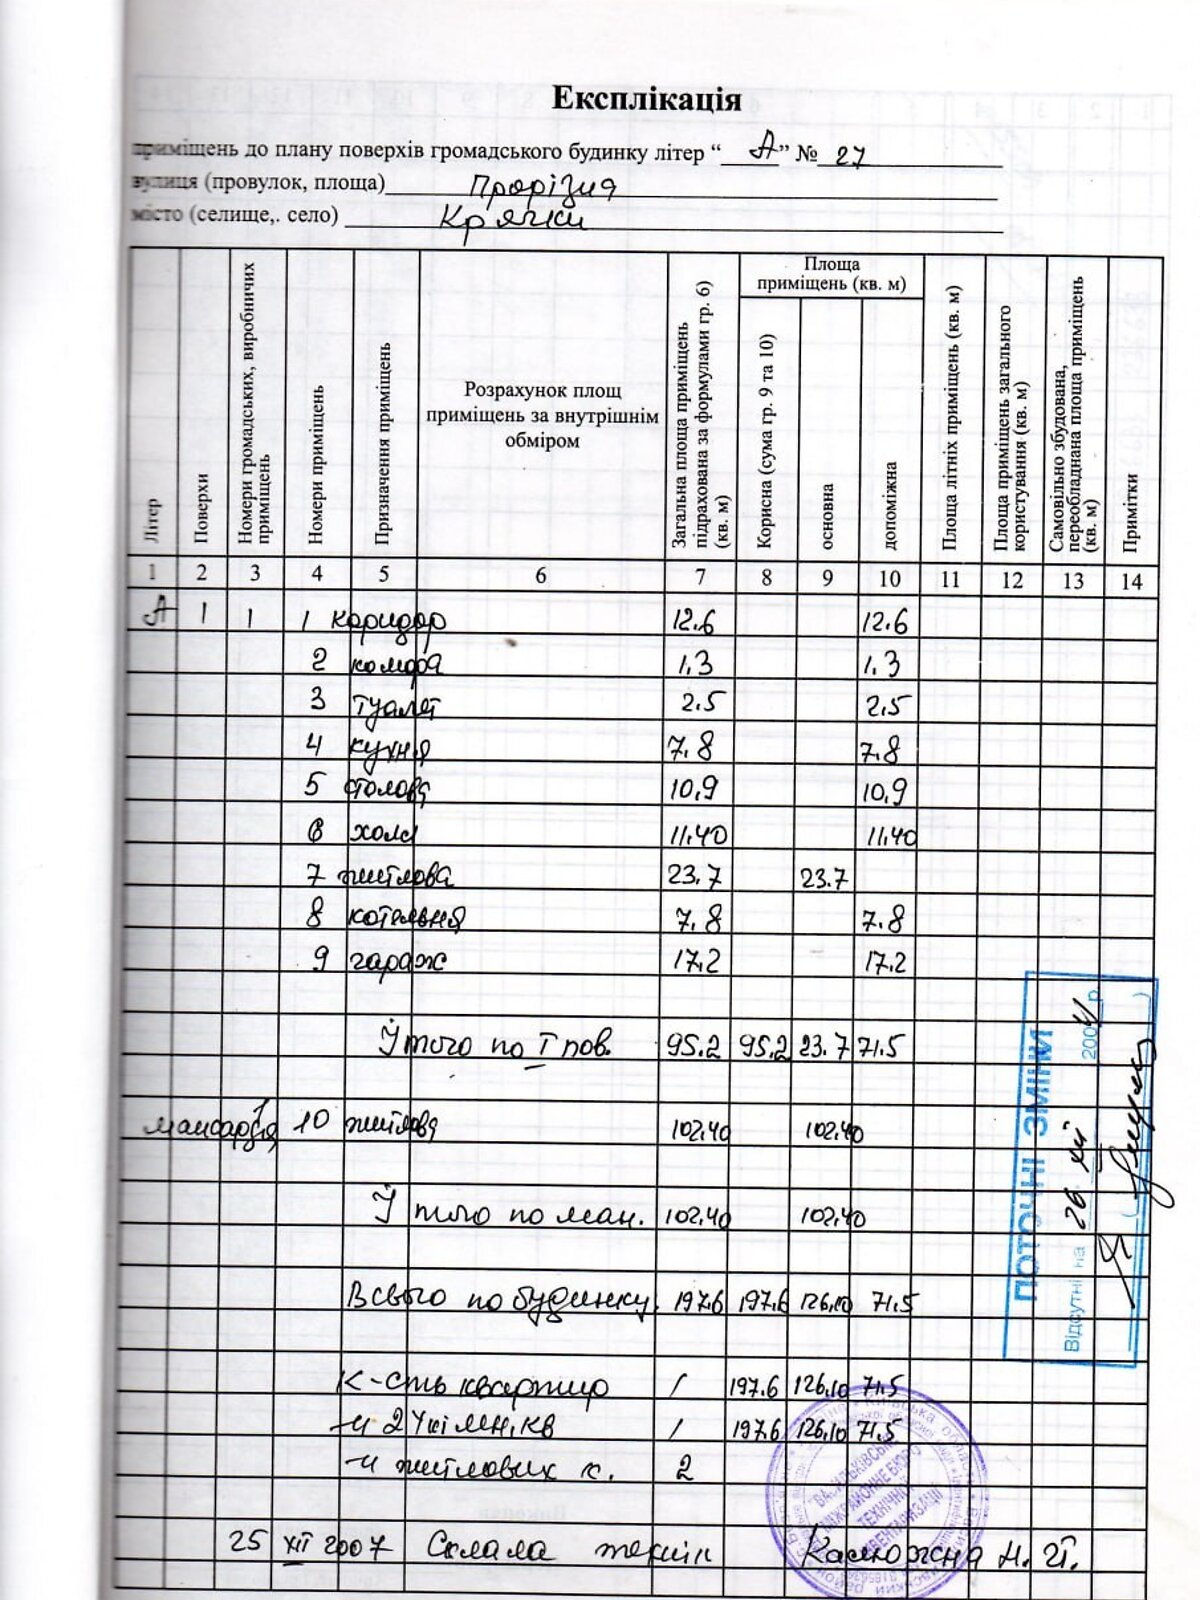 Експлікація
приміщень до плану поверхів громадського будинку літер “ А ” № 27
вулиця (провулок, площа) Прорізна
місто (селище,. село) Крячки
Літер
Поверхи
Номери громадських, виробничих приміщень
Номери приміщень
Призначення приміщень
Розрахунок площ
приміщень за внутрішнім
обміром
Загальна площа приміщень
підрахована за формулами гр. 6)
(кв. м)
Площа
приміщень (кв. м)
Корисна (сума гр. 9 та 10)
основна
допоміжна
Площа літніх приміщень (кв. м)
Площа приміщень загального
користування (кв. м)
Самовільно збудована,
переобладнана площа приміщень
(кв. м)
Примітки
1 2 3 4 5 6 7 8 9 10 11 12 13 14
А 1 1 1 коридор 12.6 12.6
2 комора 1.3 1.3
3 туалет 2.5 2.5
4 кухня 7.8 7.8
5 столова 10,9 10,9
6 холл 11.40 11.40
7 житлова 23.7 23.7
8 котельня 7.8 7.8
9 гараж 17.2 17.2
Ітого по І пов. 95.2 95.2 23.7 71.5
мансардня 10 житлова 102.40 102.40
Ітого по ман. 102.40 102.40
Всього по будинку 197.6 197.6 126.10 71.5
К-сть квартир 1 197.6 126.10 71.5
-"- 2 1 197.6 126.10 71.5
-"- житлових к. 2
25 XII 2007 Склала технік Н.
ПОТОЧНІ ЗМІНИ
Відсутні на 26 XII 200 р.
ВАСИЛЬКІВСЬКЕ
МІЖРАЙОННЕ БЮРО
ТЕХНІЧНОЇ
ІНВЕНТАРИЗАЦІЇ